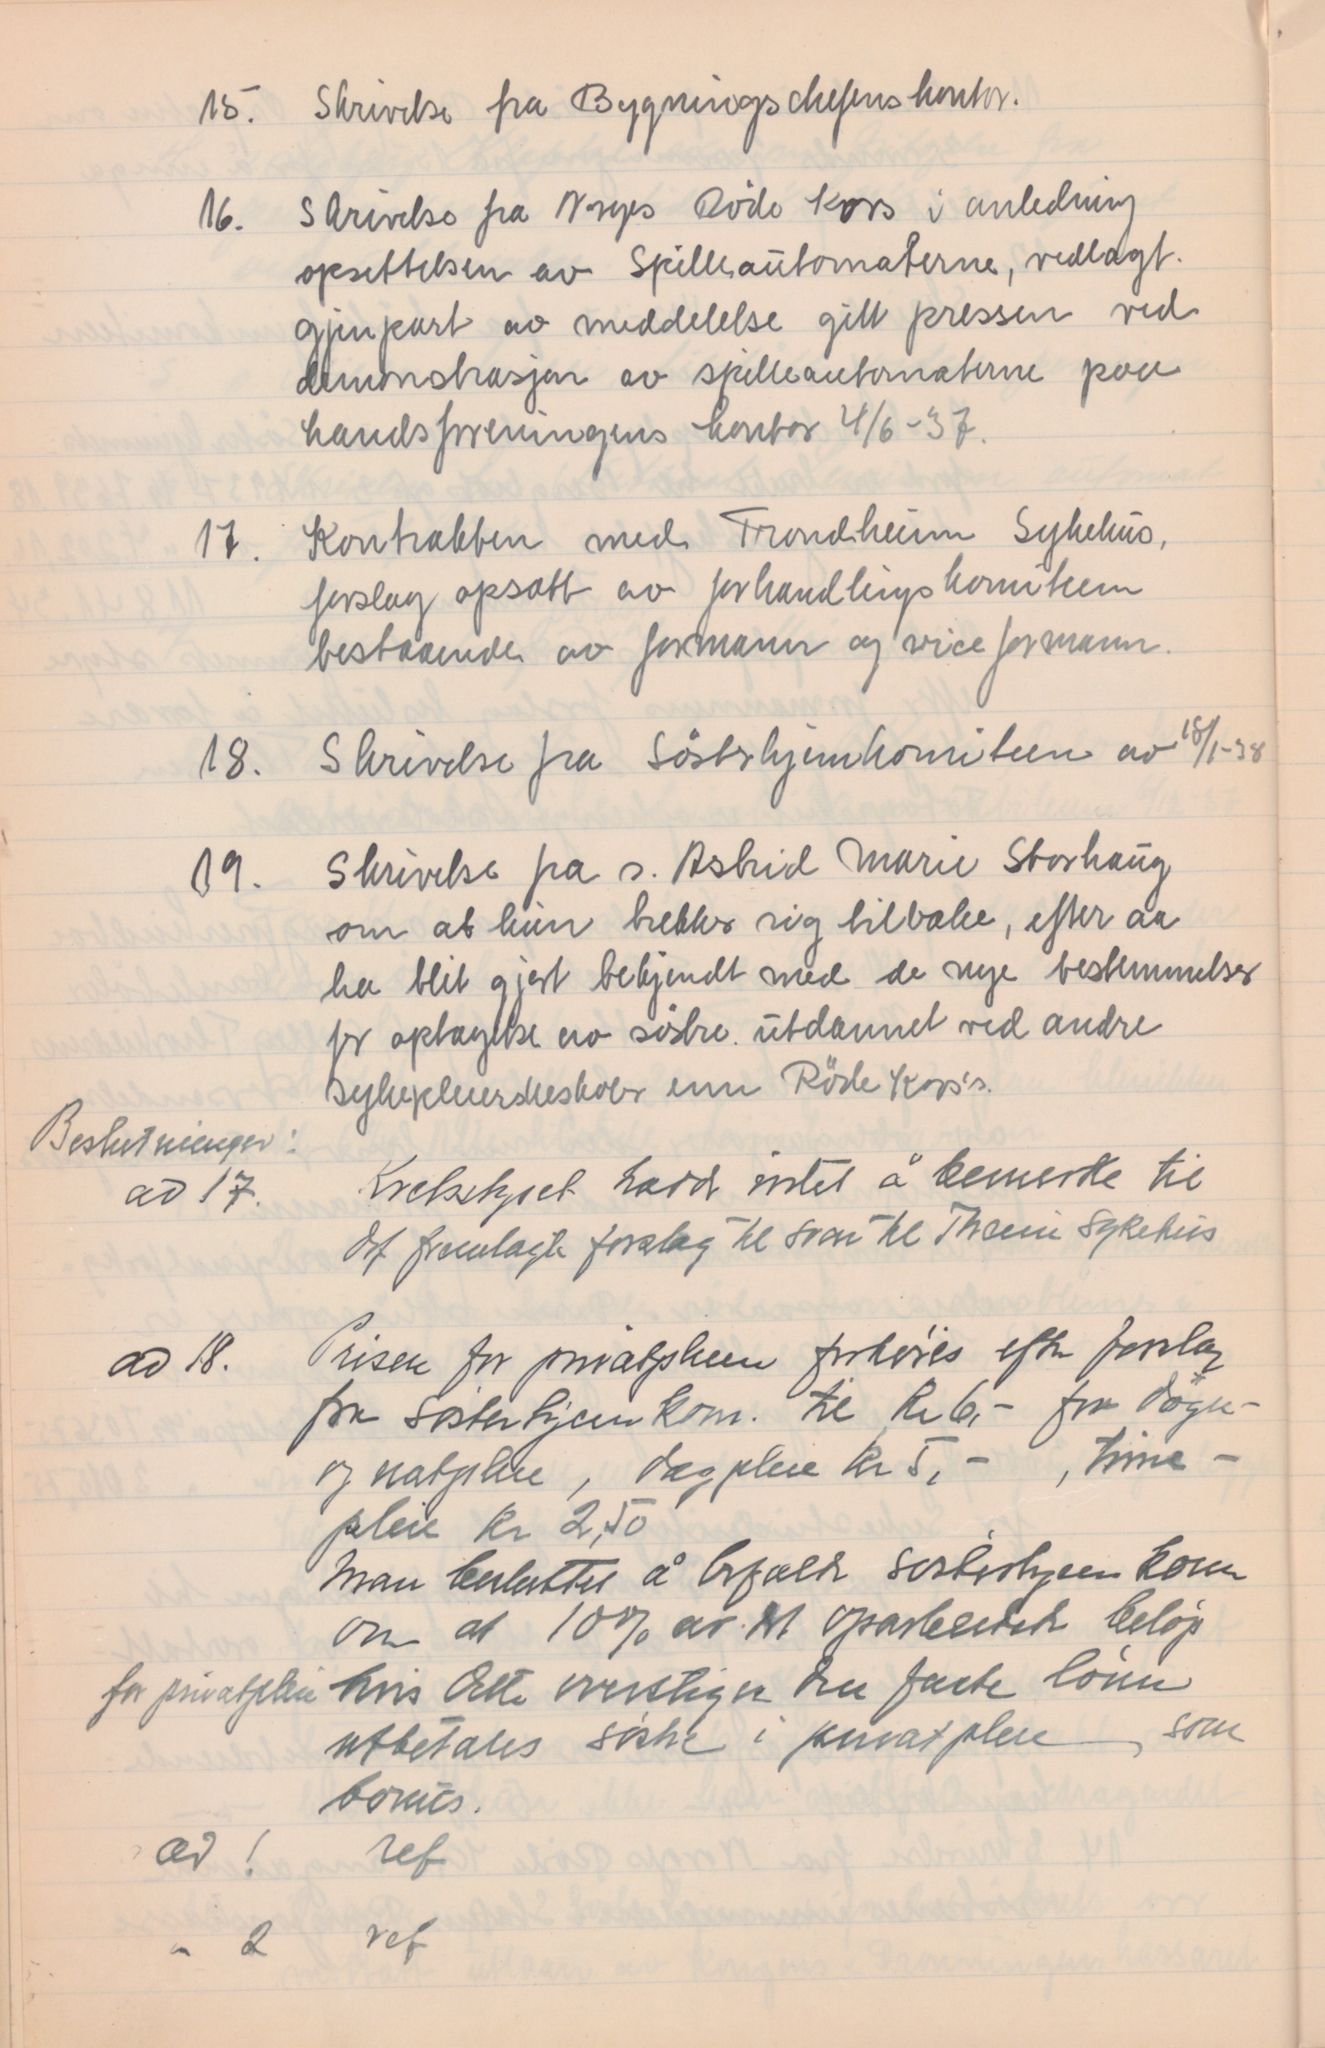 15. Skrivelse fra Bygningschefens kontor.
16. Skrivelse fra Norges Röde Kors i anledning
opsettelsen av Spilleautomaterne, vedlagt
gjenpart av meddelelse gitt pressen ved
demonstrasjon av spilleautomaterne paa
handsforeningens kontor 4/6-37.
17. Kontrakten med Trondheim Sykehus,
forslag opsatt av forhandlingskomiteen
bestaaende av formann og viceformann.
18. Skrivelse fra Söster­hjemkomiteen av 18/1-38
19. Skrivelse fra s. Astrid Marie Storhaug
om at hun trekker sig tilbake, efter aa
ha blit gjort bekjendt med de nye bestemmelser
for optagelse av söstre utdannet ved andre
sykepleierskeskoler enn Röde Kors's.
Beslutninger:
ad 17. Kretsstyret hadde intet å bemerke til
det fremlagte forslag til svar til Trheim Sykehus
ad 18. Prisen for privatpleien forhöies efter forslag
fra Sösterhjemkom. til kr 6,- for dögn-
og natpleie, dagpleie kr 5,- , time-
pleie kr 2,50
Man besluttet å anbefale sösterhjemkom
om at 10% av det oparbeidede belöp
for privatpleie hvis dette overstiger den faste lönn
utbetales söstre i privatpleie, som
bonus.
ad 1 ref
" 2 ref